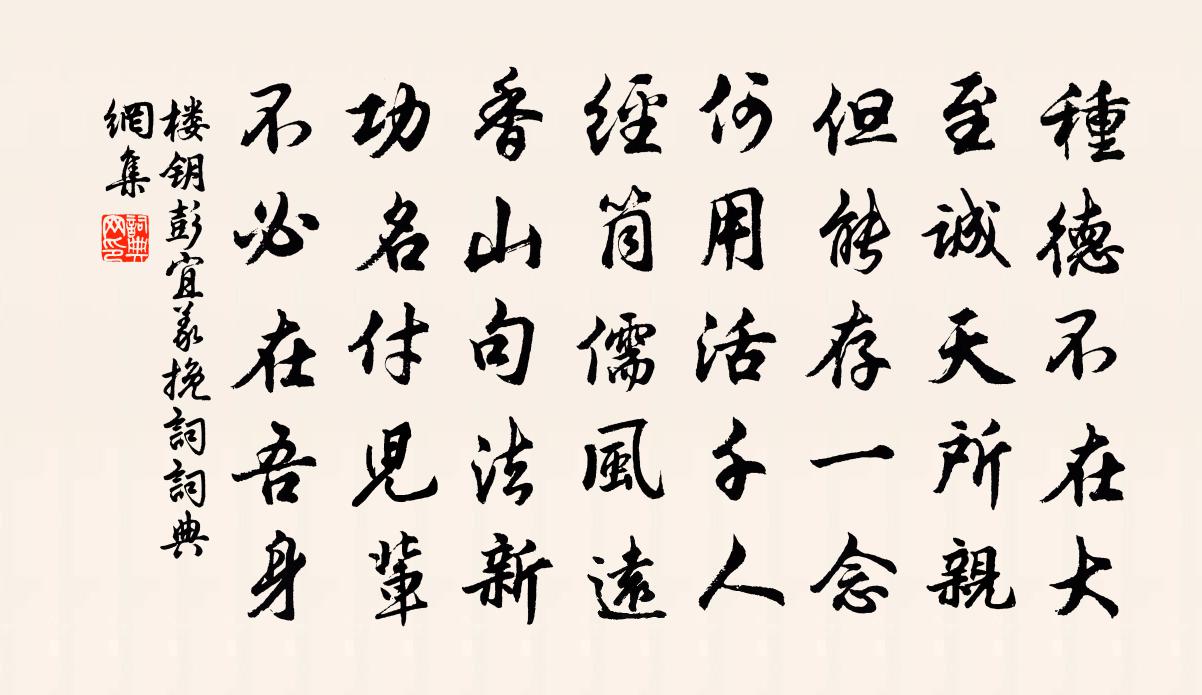 種德不在大
至誠天所親
但能存一念
何用活千人
經笥儒風遠
香山句法新
功名付兒輩
不必在吾身
楼钥彭宜義挽詞詞典
網集
詞典網印